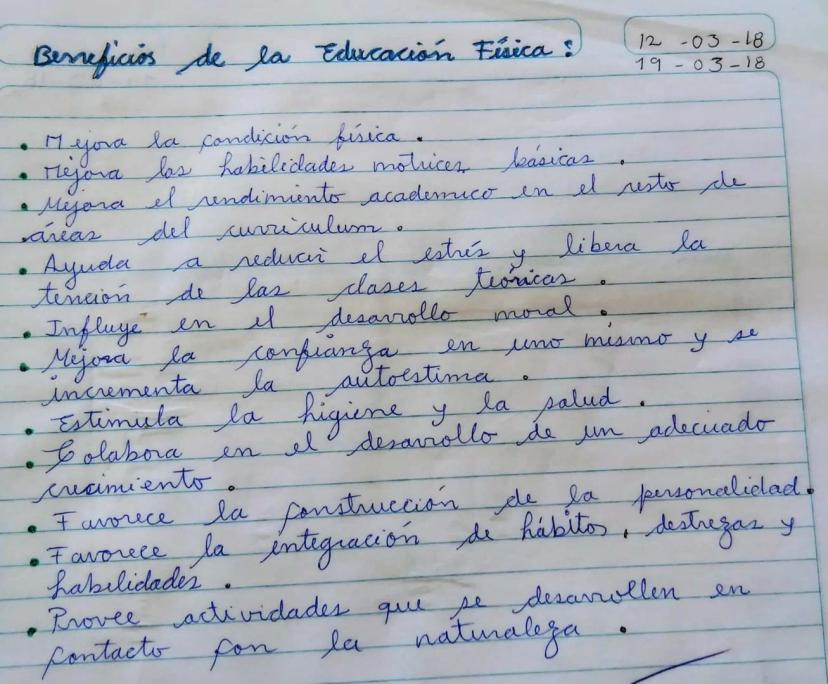 Beneficios de la Educación Física:
12 -03 -18
19 -03 -18
• Mejora la condición física.
• Mejora las habilidades motrices básicas.
• Mejora el rendimiento academico en el resto de
áreas del curriculum.
• Ayuda a reducir el estrés y libera la
tención de las clases teóricas.
• Influye en el desarrollo moral.
• Mejora la confianza en uno mismo y se
incrementa la autoestima.
• Estimula la higiene y la salud.
• Colabora en el desarrollo de un adecuado
crecimiento.
• Favorece la construcción de la personalidad.
• Favorece la integración de hábitos, destrezas y
habilidades.
• Provee actividades que se desarrollen en
contacto con la naturaleza.